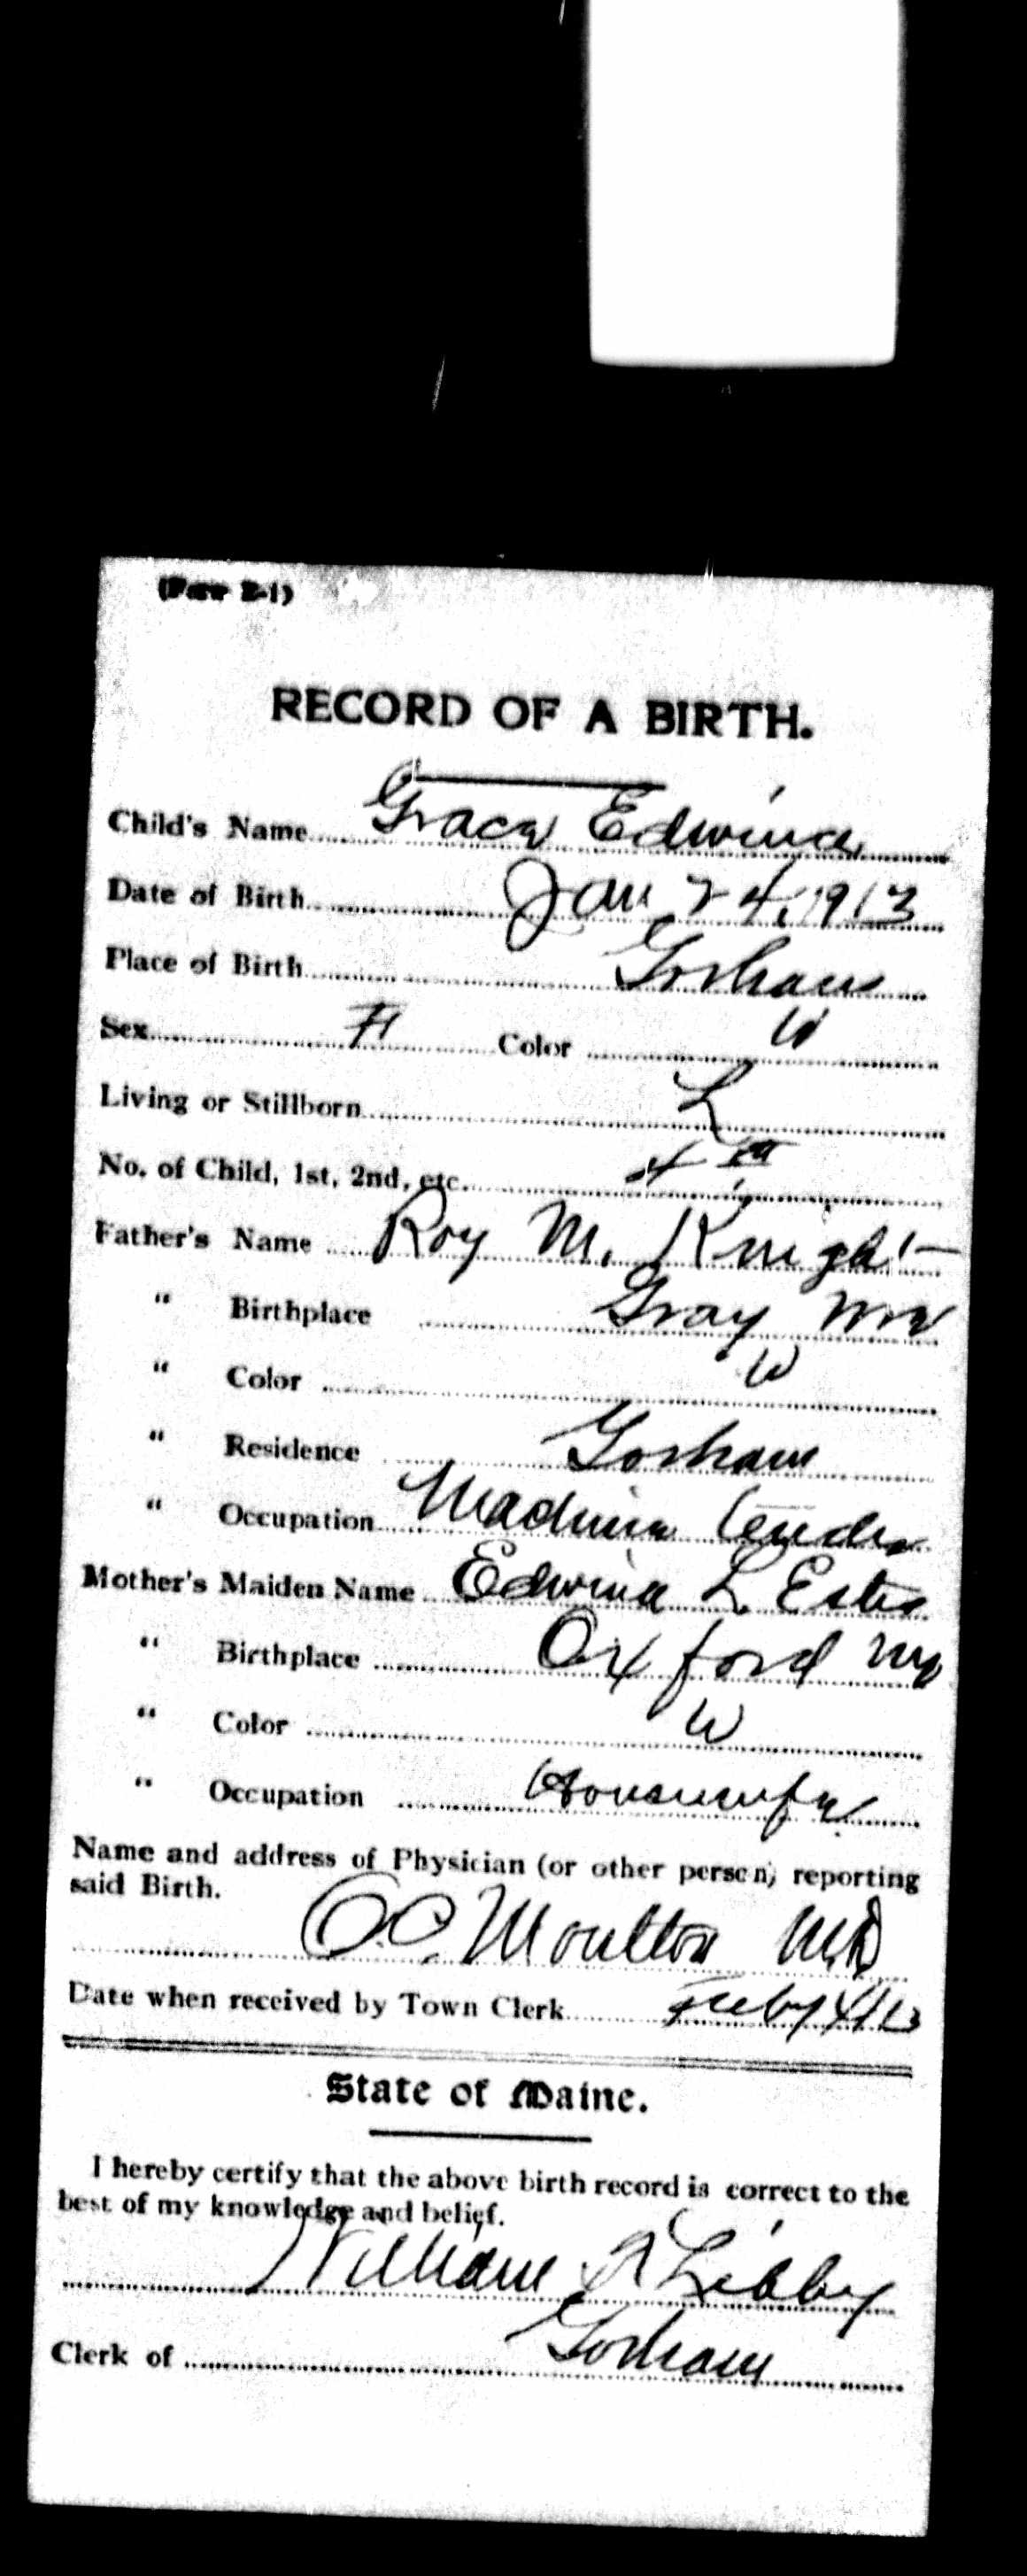 RECORD OF A BIRTH.
Child's Name Grace Edwina
Date of Birth Jan 24, 1913
Place of Birth Gorham
Sex F Color W
Living or Stillborn L
No. of Child, 1st, 2nd, etc. 4th
Father's Name Roy M. Knight
" Birthplace Gray Me
" Color W
" Residence Gorham
" Occupation Machine
Mother's Maiden Name Edwina L Estes
" Birthplace Oxford Me
" Color W
" Occupation Housewife
Name and address of Physician (or other person) reporting
said Birth.
Moulton M.D
Date when received by Town Clerk
State of Maine.
I hereby certify that the above birth record is correct to the
best of my knowledge and belief.
William Libby
Clerk of Gorham